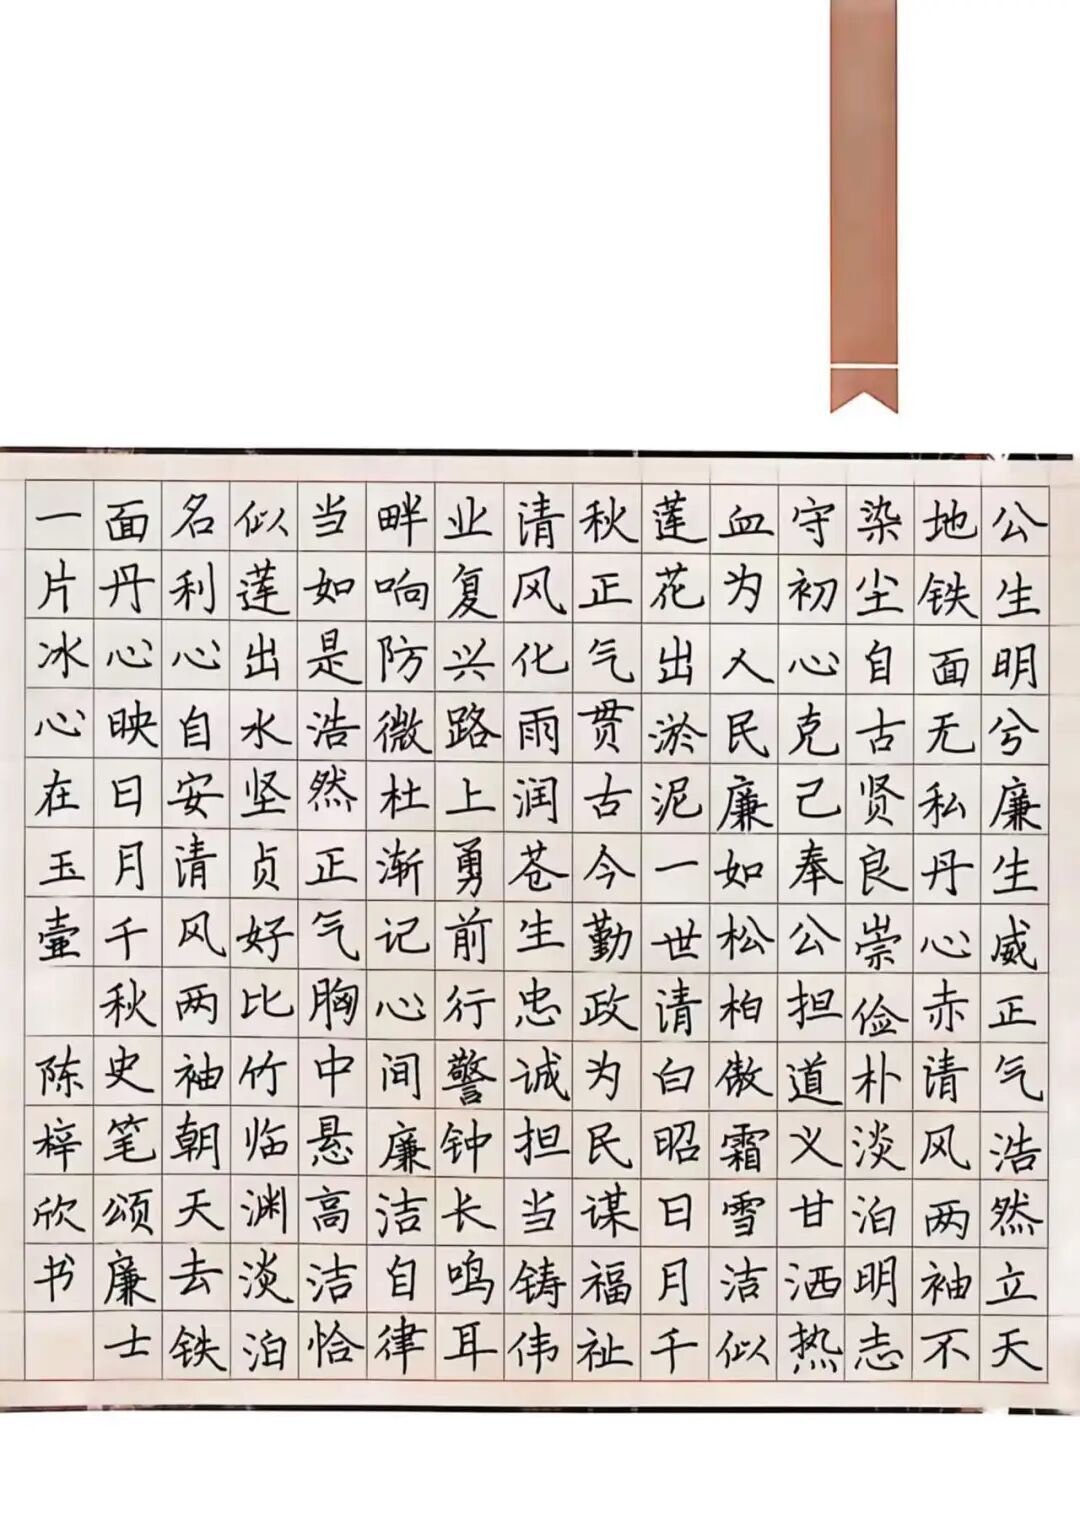 公生明兮廉生威正气浩然立天
地铁面无私丹心赤请风两袖不
染尘自古贤良崇俭朴淡泊明志
守初心克己奉公担道义甘洒热
血为人民廉如松柏傲霜雪洁似
莲花出淤泥一世清白昭日月千
秋正气贯古今勤政为民谋福祉
清风化雨润苍生忠诚担当铸伟
业复兴路上勇前行警钟长鸣耳
畔响防微杜渐记心间廉洁自律
当如是浩然正气胸中悬高洁恰
似莲出水坚贞好比竹临渊淡泊
名利心自安清风两袖朝天去铁
面丹心映日月千秋史笔颂廉士
一片冰心在玉壶 陈梓欣书